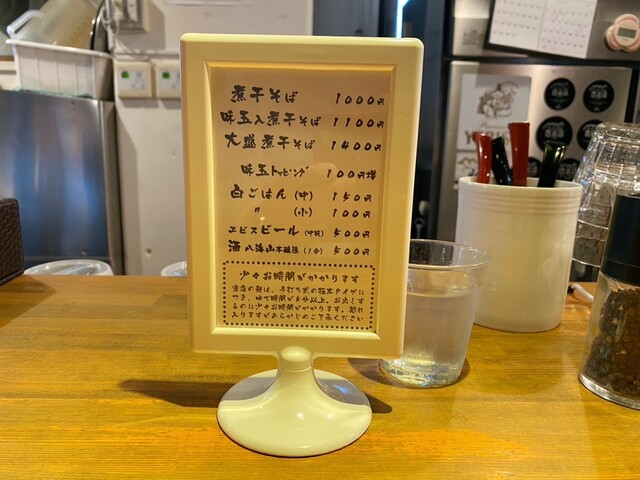 煮干そば 1000円
味玉入煮干そば 1100円
大盛煮干そば 1400円
味玉トッピング 100円増
白ごはん (中) 150円
〃 (小) 100円
ヱビスビール (中瓶) 500円
酒 八海山本醸造 (1合) 500円
少々お時間がかかります
当店の麺は、手打ち式の極太タイプに
つき、ゆで時間が
以上。お出しす
るのに少々お時間がかかります。恐れ
入りますがあらかじめご了承ください